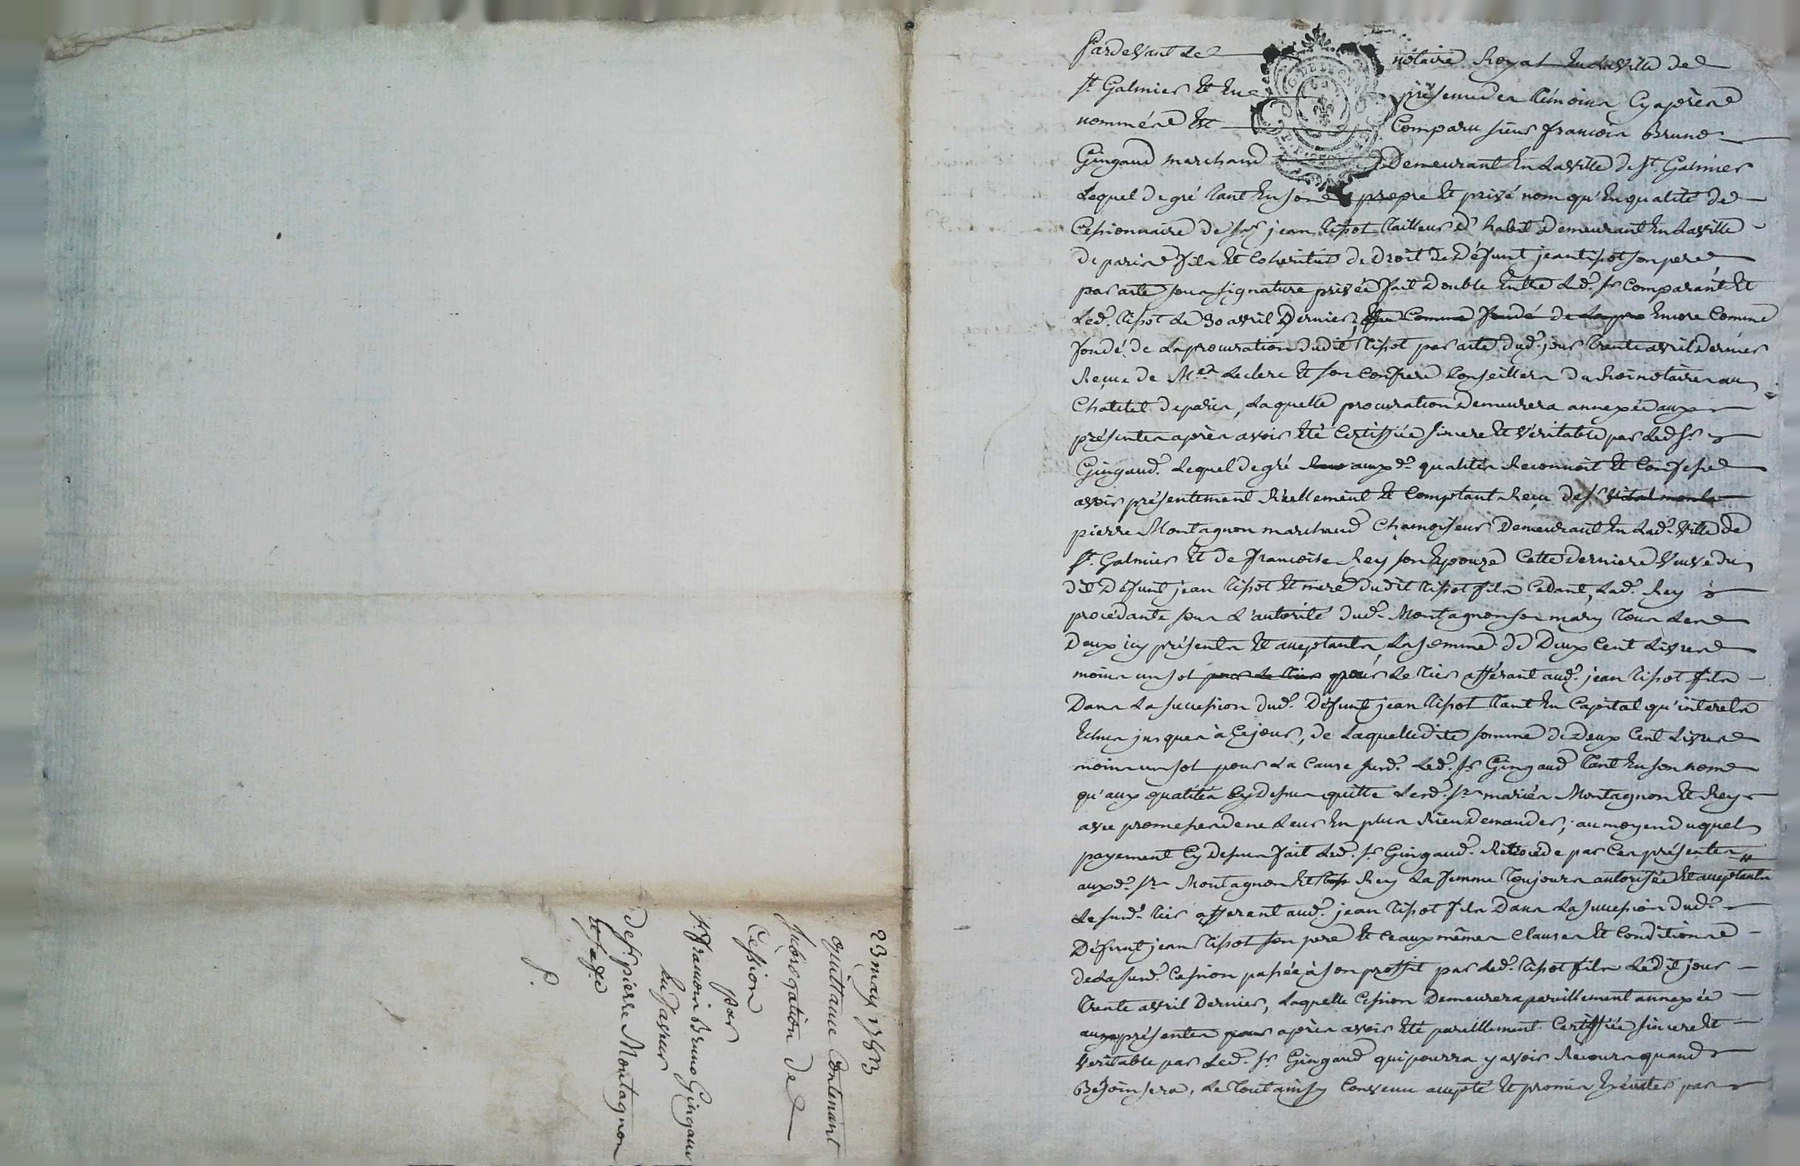 Pardevant Le notaire Royal En La ville de
St. Galmier Et En présence des témoins Cy après
nommés Est Comparu sieur françois Bruno
Gingaud marchand Demeurant En La ville de St. Galmier
Lequel de gré tant En son propre Et privé nom qu'En qualité de
Cessionnaire de Sr. jean tissot tailleur d'habit Demeurant En La ville
de paris fils Et Coheritier de Droit de Défunt jean tissot son pere
par acte sous signature privée fait Double Entre Led. Sr. Comparant Et
Led. tissot Le 30 avril Dernier, Encore Comme
fondé de La procuration dudit tissot par acte dud. jour trente avril Dernier
Reçue de Mes. Leclerc Et son Confrere Conseillers du Roi notaires au
Chatelet de paris, Laquelle procuration Demeurera annexée aux
présentes après avoir Eté Certiffiée sincere Et Véritable par Led. Sr.
Gingaud. Lequel de gré auxd. qualités Reconnoit Et Confesse
avoir présentement Réellement Et Comptant Reçu de Sr.
pierre Montagnon marchand Chamoiseur Demeurant En Lad. Ville de
St. Galmier Et de francoise Rey son Epouze Cette derniere Veuve du
dit Défunt jean tissot Et mere dudit tissot fils Cedant, Lad. Rey
procédante sous L'autorité dud. Montagnon son mary tous Les
Deux icy présents Et acceptants, La somme de Deux Cent Livres
moins un sol pour Le tiers afférant aud. jean tissot fils
Dans La succession dud. Défunt jean tissot tant En Capital qu'interets
Echus jusques à Ce jour, de Laquelle dite somme de Deux Cent Livres
moins un sol pour La Cause susd. Led. Sr. Gingaud tant En son nom
qu'aux qualités Cy Dessus quitte Lesd. Srs. mariés Montagnon Et Rey
avec promesse de ne Leur En plus Rien Demander; au moyen duquel
payement Cy Dessus fait Led. Sr. Gingaud. Retrocede par Ces présentes
auxd. Srs. Montagnon Et Rey La femme toujours autorisée Et acceptants
Le susd. tiers afferent aud. jean tissot fils Dans La succession dud.
Défunt jean tissot son pere Et Ce aux mêmes Clauses Et Conditions
de La susd. Cession passée à son proffit par Led. tissot fils Ledit jour
trente avril Dernier, Laquelle Cession Demeurera pareillement annexée
aux présentes après avoir Eté pareillement Certiffiée sincere Et
Veritable par Led. Sr. Gingaud qui pourra y avoir Recours quand
Besoin sera, Le tout ainsy Convenu accepté Et promis Exécuter par
23 may 1783
quittance Contenant
subrogation de
Cession
par
Sr. francois Bruno Gingaud
En faveur
de Sr. pierre Montagnon